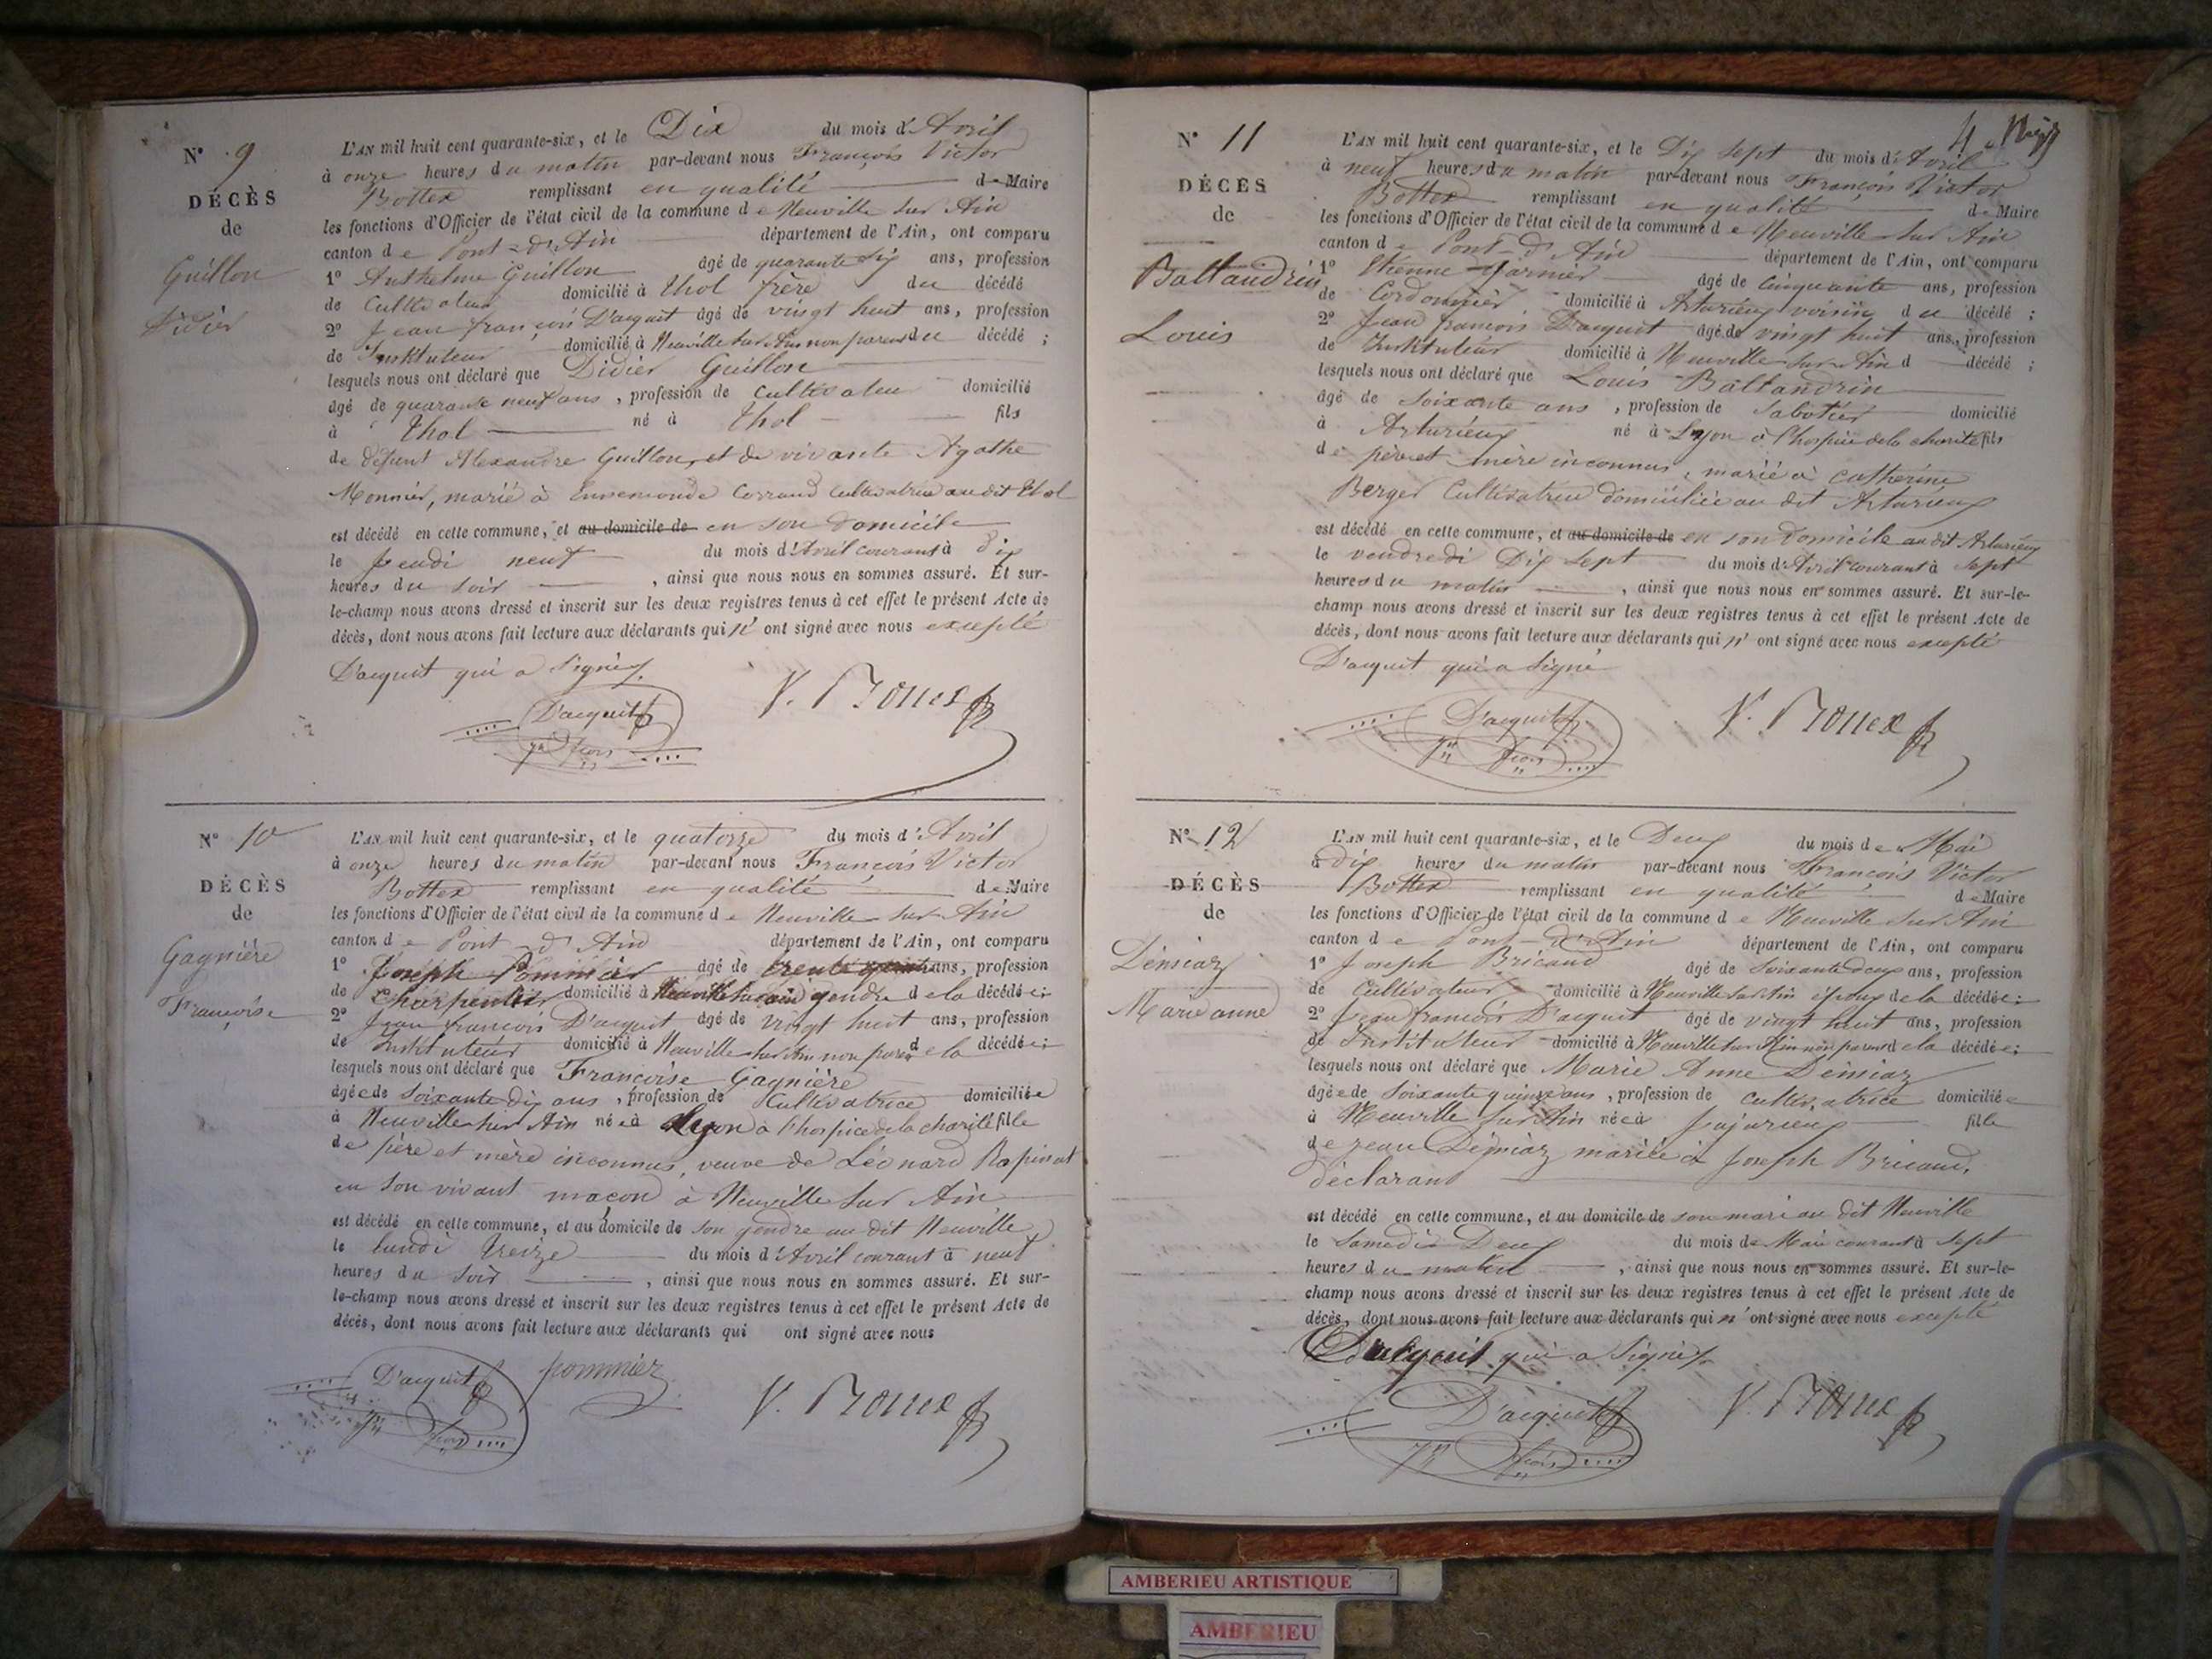 N° 9
DÉCÈS
de
Guillon
Didier
L'AN mil huit cent quarante-six, et le Dix du mois d'Avril
à onze heures du matin par-devant nous François Victor
Bottex remplissant en qualité de Maire
les fonctions d'Officier de l'état civil de la commune de Neuville sur Ain
canton de Pont-d'Ain département de l'Ain, ont comparu
1° Anthelme Guillon âgé de quarante six ans, profession
de Cultivateur domicilié à Thol frère du décédé
2° Jean françois D'acquit âgé de vingt huit ans, profession
de Instituteur domicilié à Neuville sur Ain non parent du décédé ;
lesquels nous ont déclaré que Didier Guillon
âgé de quarante neuf ans, profession de Cultivateur domicilié
à Thol né à Thol fils
de défunt Alexandre Guillon, et de vivante Agathe
Monnier, marié à Ennemonde Corraud Cultivatrice audit Thol
est décédé en cette commune, et au domicile de en son domicile
le Jeudi neuf du mois d'Avril courant à dix
heures du soir, ainsi que nous nous en sommes assuré. Et sur-
le-champ nous avons dressé et inscrit sur les deux registres tenus à cet effet le présent Acte de
décès, dont nous avons fait lecture aux déclarants qui n'ont signé avec nous excepté
D'acquit qui a signé.
D'acquit
Jn fçois
V. Bottex
N° 10
DÉCÈS
de
Gagnière
Françoise
L'AN mil huit cent quarante-six, et le quatorze du mois d'Avril
à onze heures du matin par-devant nous François Victor
Bottex remplissant en qualité de Maire
les fonctions d'Officier de l'état civil de la commune de Neuville sur Ain
canton de Pont-d'Ain département de l'Ain, ont comparu
1° Joseph Pommier âgé de trente ans, profession
de Charpentier domicilié à Neuville sur ain gendre de la décédée ;
2° Jean françois D'acquit âgé de vingt huit ans, profession
de Instituteur domicilié à Neuville sur Ain non parent de la décédée ;
lesquels nous ont déclaré que Françoise Gagnière
âgée de soixante dix ans, profession de Cultivatrice domiciliée
à Neuville sur Ain née à Lyon à l'hospice de la charité fille
de père et mère inconnus, veuve de Léonard Rapinat
en son vivant maçon à Neuville sur Ain
est décédé en cette commune, et au domicile de son gendre au dit Neuville
le lundi treize du mois d'Avril courant à neuf
heures du soir, ainsi que nous nous en sommes assuré. Et sur-
le-champ nous avons dressé et inscrit sur les deux registres tenus à cet effet le présent Acte de
décès, dont nous avons fait lecture aux déclarants qui ont signé avec nous
D'acquit
Jn fçois
pommier
V. Bottex
4
N° 11
DÉCÈS
de
Baltandrin
Louis
L'AN mil huit cent quarante-six, et le Dix sept du mois d'Avril
à neuf heures du matin par-devant nous François Victor
Bottex remplissant en qualité de Maire
les fonctions d'Officier de l'état civil de la commune de Neuville sur Ain
canton de Pont d'Ain département de l'Ain, ont comparu
1° Etienne Garnier âgé de cinquante ans, profession
de Cordonnier domicilié à Arturieux voisin du décédé ;
2° Jean françois D'acquit âgé de vingt huit ans, profession
de Instituteur domicilié à Neuville sur Ain d décédé ;
lesquels nous ont déclaré que Louis Baltandrin
âgé de soixante ans, profession de Sabotier domicilié
à Arturieux né à Lyon à l'hospice de la charité fils
de père et mère inconnus, marié à Catherine
Berger Cultivatrice domiciliée au dit Arturieux
est décédé en cette commune, et au domicile de en son domicile au dit Arturieux
le vendredi Dix sept du mois d'Avril courant à sept
heures du matin, ainsi que nous nous en sommes assuré. Et sur-le-
champ nous avons dressé et inscrit sur les deux registres tenus à cet effet le présent Acte de
décès, dont nous avons fait lecture aux déclarants qui n'ont signé avec nous excepté
D'acquit qui a signé
D'acquit
Jn fçois
V. Bottex
N° 12
DÉCÈS
de
Déniaz
Marie anne
L'AN mil huit cent quarante-six, et le Deux du mois de Mai
à dix heures du matin par-devant nous François Victor
Bottex remplissant en qualité de Maire
les fonctions d'Officier de l'état civil de la commune de Neuville sur Ain
canton de Pont-d'Ain département de l'Ain, ont comparu
1° Joseph Bricaud âgé de soixante deux ans, profession
de Cultivateur domicilié à Neuville sur Ain époux de la décédée ;
2° Jean françois D'acquit âgé de vingt huit ans, profession
de Instituteur domicilié à Neuville sur Ain non parent de la décédée ;
lesquels nous ont déclaré que Marie Anne Déniaz
âgée de soixante quinze ans, profession de cultivatrice domiciliée
à Neuville sur Ain née à Jujurieux fille
de Jean Déniaz mariée à Joseph Bricaud,
déclarant
est décédé en cette commune, et au domicile de son mari au dit Neuville
le Samedi Deux du mois de Mai courant à sept
heures du matin, ainsi que nous nous en sommes assuré. Et sur-le-
champ nous avons dressé et inscrit sur les deux registres tenus à cet effet le présent Acte de
décès, dont nous avons fait lecture aux déclarants qui n'ont signé avec nous excepté
D'acquit qui a signé.
D'acquit
Jn fçois
V. Bottex
AMBERIEU ARTISTIQUE
AMBERIEU